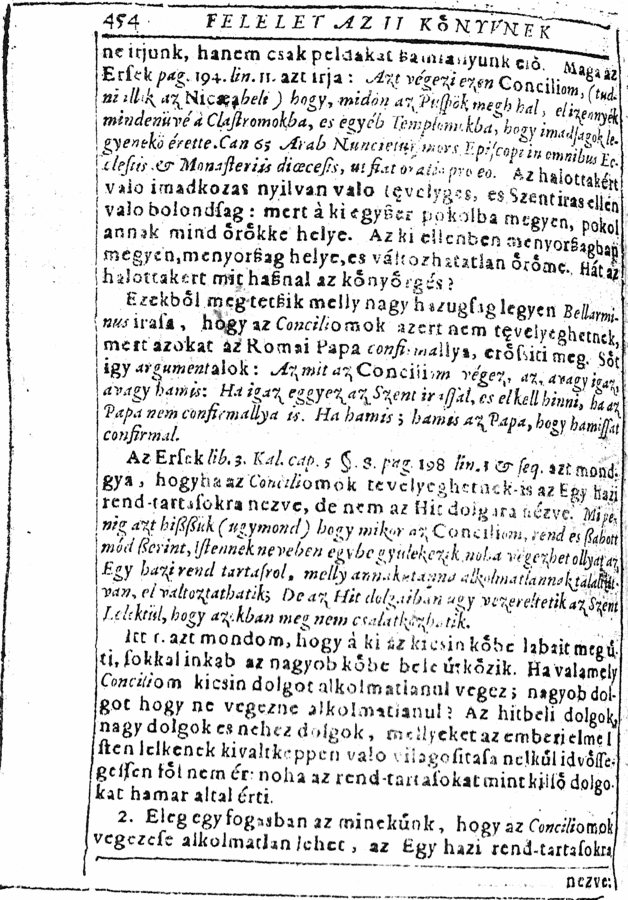 454 FELELET AZ II KŐNYVNEK
ne irjunk, hanem csak peldakat ßamlanyunk elő. Maga az
Ersek pag. 194. lin. 11. azt irja: Azt végezi ezen Concilium, (tud-
ni illik az Nicæabeli) hogy, midőn az Püspök megh hal, elizennyék
mindenüvé à Clastromokba, es egyéb Templomokba, hogy imadsagok le-
gyenekö érette. Can 65 Arab Nuncietur mors Episcopi in omnibus Ec-
clesiis & Monasteriis diœcesis, ut fiat oratio pro eo. Az halottakért
valo imadkozas nyilvan valo tęvelygés, es Szent iras ellen
valo bolondsag: mert à ki egyßer pokolba megyen, pokol
annak mind őrőkke helye. Az ki ellenben menyorßagban
megyen, menyorßag helye, es változhatatlan őrőme. Hát az
halottakert mit haßnal az kőnyőrgés?
Ezekből megtetßik melly nagy hazugsag legyen Bellarmi-
nus irasa, hogy az Conciliomok azert nem tęvelyeghetnek,
mert azokat az Romai Papa confirmallya, erőssiti meg. Sőt
igy argumentalok: Az mit az Concilium végez, az, avagy igaz,
avagy hamis: Ha igaz eggyez az Szent irassal, es el kell hinni, ha az
Papa nem confirmallya is. Ha hamis; hamis az Papa, hogy hamissat
confirmal.
Az Ersek lib. 3. Kal. cap. 5 §. 8. pag. 198 lin. 1 & seq. azt mond-
gya, hogy ha az Conciliomok tevelyeghetnek-is az Egy hazi
rend-tartasokra nezve, de nem az Hit dolgara nézve. Mi pe-
nig azt hißßük (ugymond) hogy mikor az Concilium, rend es ßabott
mód ßerint, Istennek neveben egybe gyülekezik noha végezhet ollyat az
Egy hazi rend tartasrol, melly annakutanna alkolmatlannak talaltat-
van, el valtoztathatik; De az Hit dolgaiban ugy vezereltetik az Szent
Lelektül, hogy azokban meg nem csalatkozhatik.
Itt 1. azt mondom, hogy á ki az kicsin kőbe labait megű-
ti, sokkal inkab az nagyob kőbe bele űtkőzik. Ha valamely
Conciliom kicsin dolgot alkolmatlanul vegez; nagyob dol-
got hogy ne vegezne alkolmatlanul? Az hitbeli dolgok,
nagy dolgok es nehez dolgok, mellyeket az emberi elme I
sten lelkenek kivaltkeppen valo vilagositasa nelkűl idvősse-
gessen fől nem ér: noha az rend-tartasokat mint kűlső dolgo-
kat hamar altal érti.
2. Eleg egy fogasban az minekűnk, hogy az Conciliomok
vegezese alkolmatlan lehet, az Egy hazi rend-tartasokra
nezve: